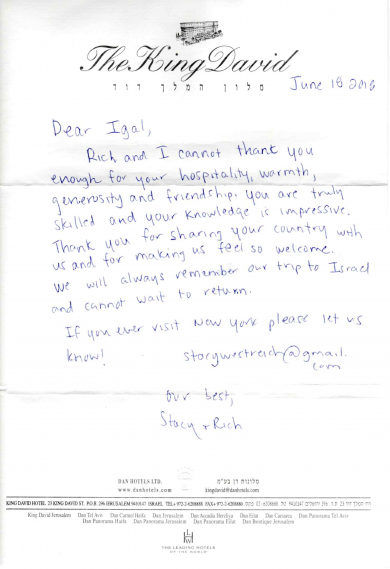 The King David
מלון המלך דוד
June 18 2016
Dear Igal,
Rich and I cannot thank you
enough for your hospitality, warmth,
generosity and friendship. You are truly
skilled and your knowledge is impressive.
Thank you for sharing your country with
us and for making us feel so welcome.
We will always remember our trip to Israel
and cannot wait to return.
If you ever visit New York please let us
know! stacywestreich@gmail.
com
Our best,
Stacy + Rich
DAN HOTELS LTD. מלונות דן בע"מ
www.danhotels.com kingdavid@danhotels.com
KING DAVID HOTEL, 23 KING DAVID ST. P.O.B. 296 JERUSALEM 9410147 ISRAEL TEL+ 972-2-6208888 FAX+ 972-2-
King David Jerusalem Dan Tel Aviv Dan Carmel Haifa Dan Jerusalem Dan Accadia Herzliya Dan Eilat Dan Caesarea Dan Panorama Tel Aviv
Dan Panorama Haifa Dan Panorama Jerusalem Dan Panorama Eilat Dan Boutique Jerusalem
THE LEADING HOTELS
OF THE WORLD